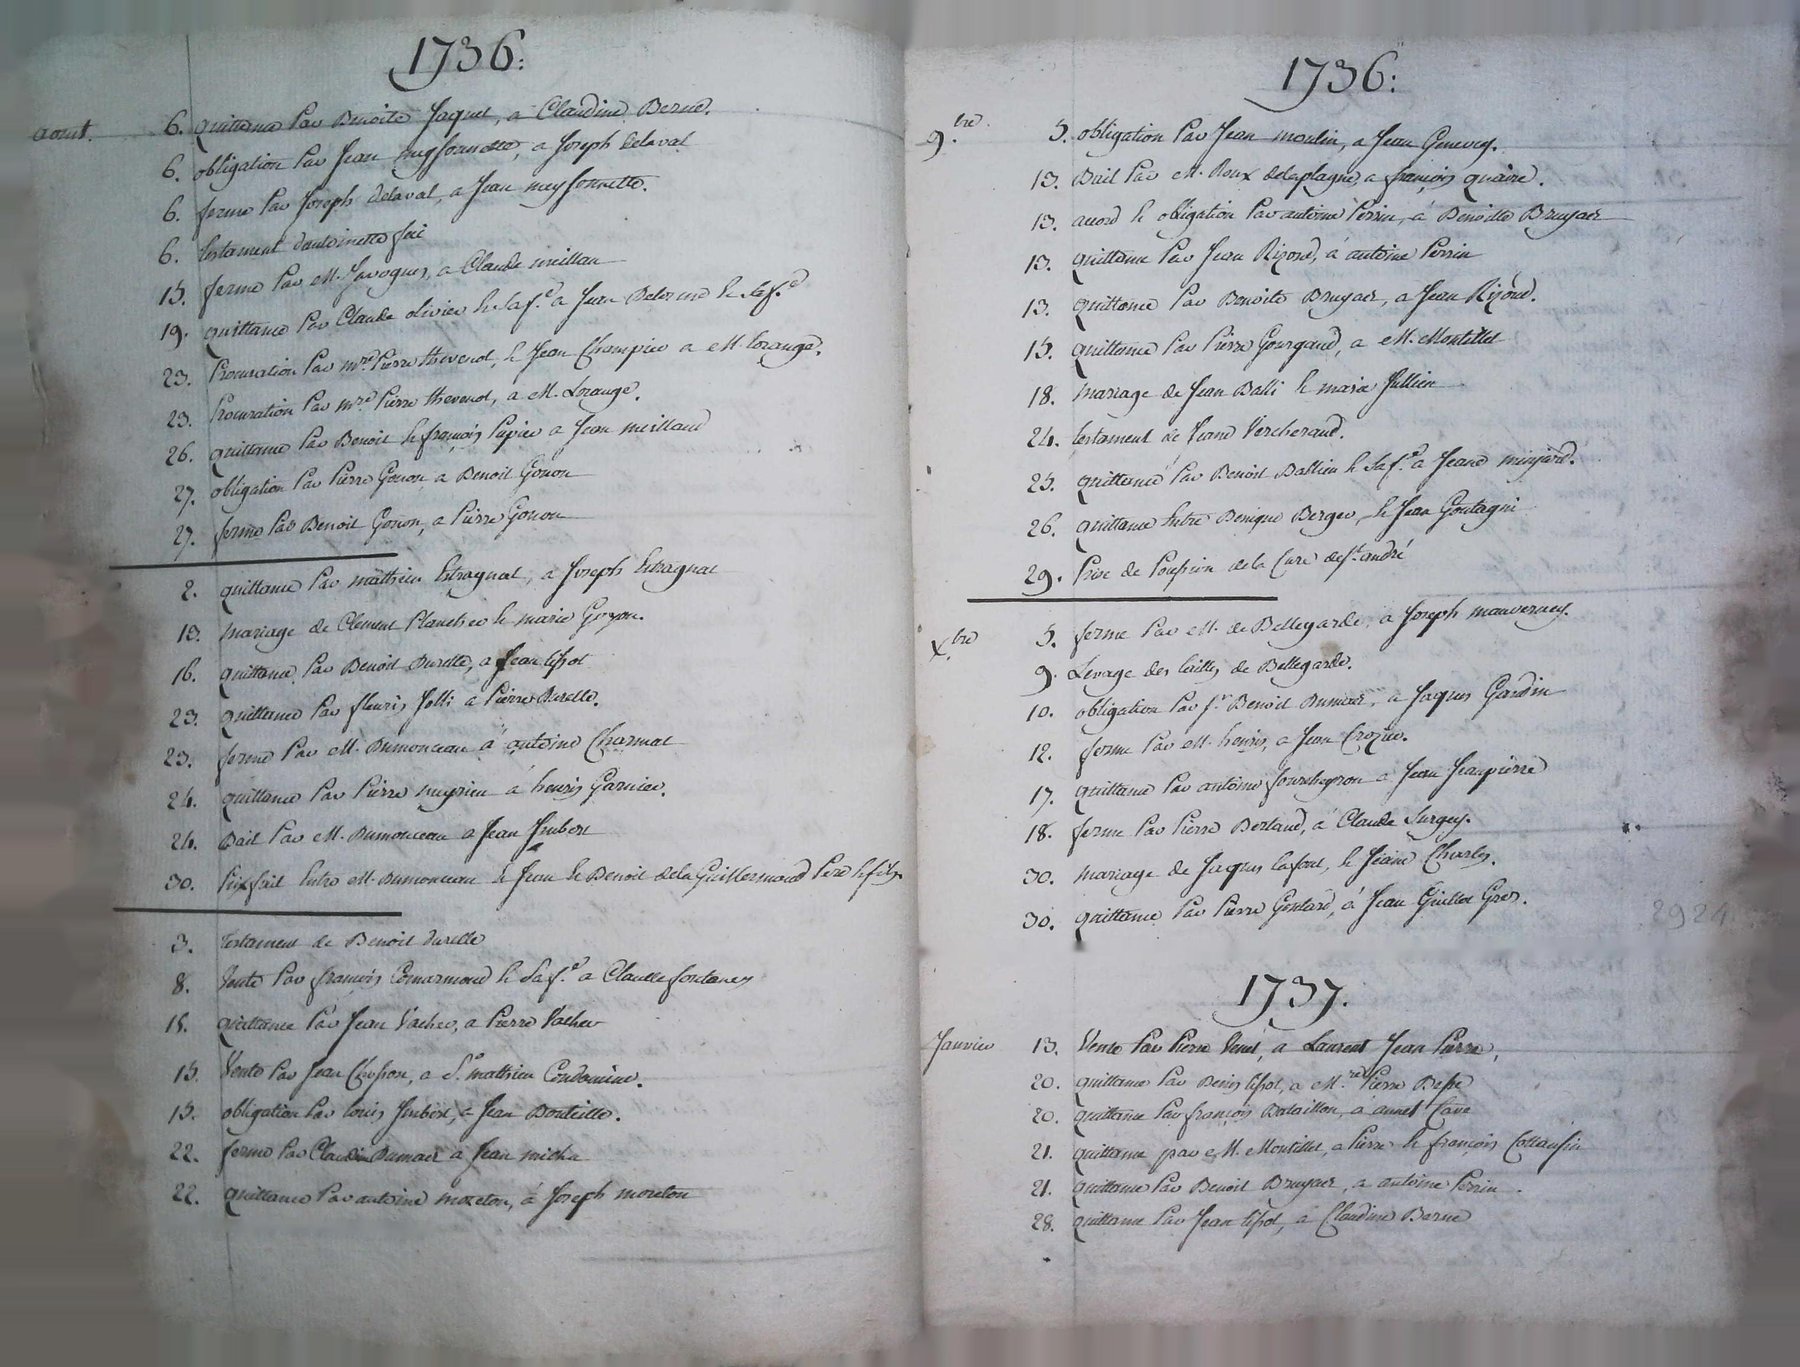 1736:
aout. 6. quittance Par Benoite Jaquet, a Claudine Berne.
6. obligation Par Jean meyssonette, a Joseph Delaval
6. ferme Par Joseph Delaval, a Jean meyssonnette.
6. testament dantoinette
15. ferme Par M. Javogues, a Claude meillan
19. quittance Par Claude olivier & sa f.e a Jean Delorme & sa f.e
23. Procuration Par mre. Pierre thevenot, & Jean Champier a M. Lorange.
23. Procuration Par mre. Pierre thevenot, a M. Lorange.
26. quittance Par Benoit & françois Papier a Jean meilland
27. obligation Par Pierre Gonon a Benoit Gonon
27. ferme Par Benoit Gonon, a Pierre Gonon
2. quittance Par mathieu Estragnat, a Joseph Estragnat
13. mariage de Clement Planchet & marie Goyon.
16. quittance Par Benoit Durelle, a Jean
23. quittance Par fleuris Jolli a Pierre Durelle.
23. ferme Par M. Dumonceau a antoine Charmat
24. quittance Par Pierre meyrieu a henris Garnier.
24. Bail Par M. Dumonceau a Jean Imbert
30. Prixfait Entre M. Dumonceau & Jean & Benoit dela Guillermond Pere & fils.
3. testament de Benoit durelle
8. Vente Par françois Comarmond & sa f.e a Claude fontanes
15. quittance Par Jean Vacher, a Pierre Vacher
15. Vente Par Jean a S.r mathieu Condamine.
15. obligation Par louis Imbert, a Jean Bouteille.
22. ferme Par Claudin Dumas a Jean micha
22. quittance Par antoine moreton, a Joseph moreton
1736:
9.bre 5. obligation Par Jean moulin, a Jean Genevey.
13. Bail Par M. Roux delaplagne, a françois quaire.
13. acord & obligation Par antoine Perrin, a Benoitte Bruyas
13. quittance Par Jean Rizond, a antoine Perrin
13. quittance Par Benoite Bruyas, a Jean Rizond.
15. quittance Par Pierre Gourgaud, a M. Montillet
18. mariage de Jean Balli & marie Jullien
24. testament de Jeane Vercherand.
25. quittance Par Benoit Ballieu & sa f.e a Jeane minjard.
26. quittance Entre Benique Berger, & Jean Goutagni
29. Prise de Possession de la Cure de St. andré
X.bre 5. ferme Par M. de Bellegarde, a Joseph mauvernay.
9. Levage des tailles de Bellegarde.
10. obligation Par s.r Benoit Dumas, a Jaques Gardin
12. ferme Par M. henris, a Jean Crozier.
17. quittance Par antoine a Jean Jeanpierre
18. ferme Par Pierre Bertaud, a Claude Surgey.
30. mariage de Jaques lafont, & Jeane Charles.
30. quittance Par Pierre Goutard, a Jean Guillot Gros.
2924
1737.
Janvier 13. Vente Par Pierre Venet, a Laurent Jean Pierre,
20. quittance Par Denis a M.re Pierre Besse
20. quittance Par françois Bataillon, a annet Cave
21. quittance par M. Montillet, a Pierre & françois Cottansin
21. quittance Par Benoit Bruyas, a antoine Perrin.
28. quittance Par Jean a Claudine Barne